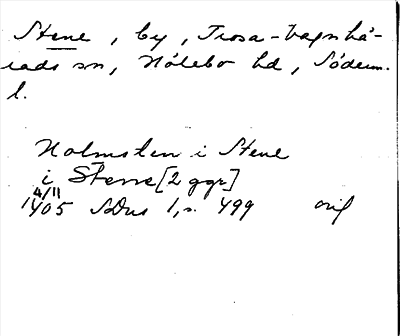 Stene, by, Trosa-Vagnhä-
rads sn, Hölebo hd, Söderm.
l.
Holmsten i Stene
i Stene [2 ggr]
4/11
1405 SDns 1, s. 499 orig